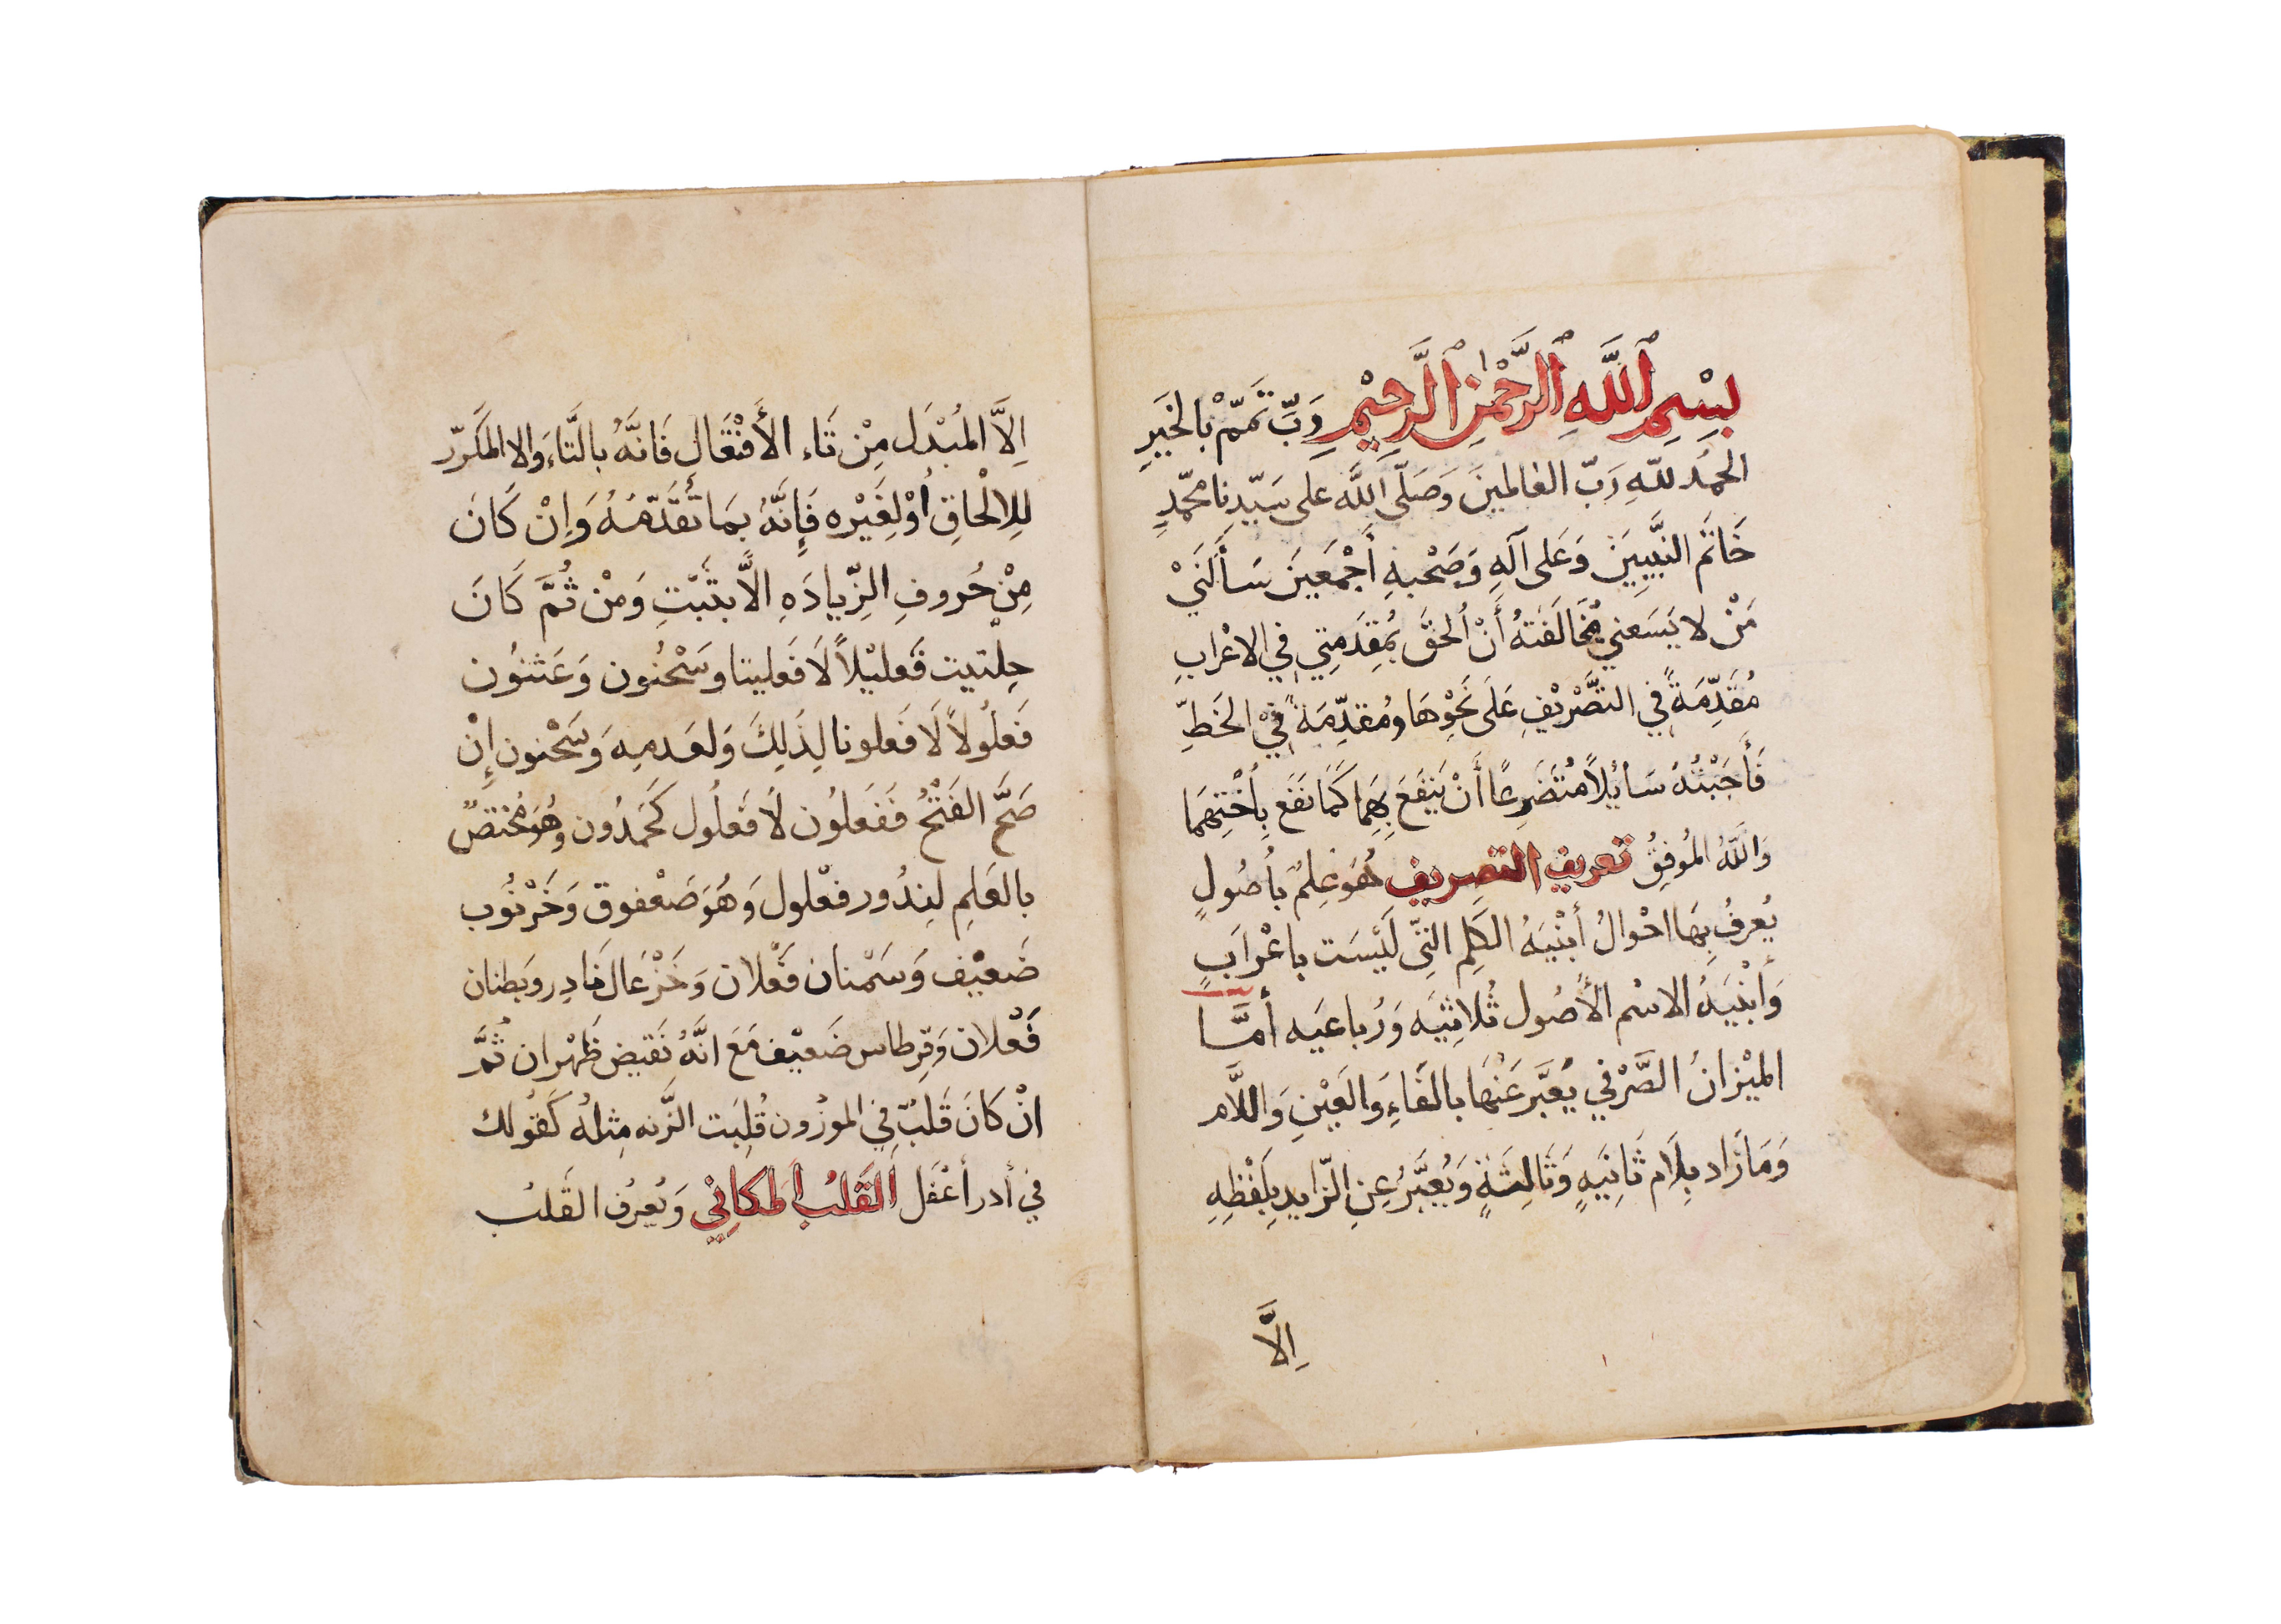 بِسْمِ ٱللَّهِ ٱلرَّحْمٰنِ ٱلرَّحِيْمِ رَبِّ تَمّمْ بالخَيَرِ
الحمَْد للّهِ رَبّ العالمينَ وَصَلّى اللَّه على سَيّدِنا محمّدٍ
خَاتَم النبَّييِنَ وَعَلى آلَهِ وَصَحْبهِ أَجْمَعينَ سَأَلَنَيْ
مَنْ لا يَسَعني مُخَالَفَتهُ أَنْ اُلحقَ بمُقِدَمِتِي فِي الاعْرابِ
مُقَدِّمَةً فِي التصَّرْيْفِ عَلَى نَحْوِهَا ومُقدِّمَةً فِيْ الخَطِّ
فَأَجَبْتُهُ سَائِلاً مُتَضَرِعًا أَنْ يَنفَعَ بِهِمَا كَمَا نفَع بِأُخْتِهَمَا
وَاللَّهُ المُوفِقُ تعريف التصريف هُوَ عِلمُ بأُصُولٍ
يُعرفُ بِهَا احْوالُ أبْنيَهُ الكَلِم التّي لَيْسَت باعْرَابٍ
وَأَبْنْيَهُ الاسْم الأُصُول ثُلاثيَه وَرُباعيَه أمَّا
الميْزانُ الصَّرْفي يُعَبَّر عَنْهَا بالفَاءِ وَالعَيْنِ وَاللَّام
وَمَا زَاد بِلَام ثَانِيَهٍ وَثَالثَةٍ وَيُعَبَّرُ عِنِ الزّايدِ بِلَفْظِهِ
اِلَّا
اِلاَّ المُبْدَل مِنْ تَاء الأَفْتَعَالِ فَانَّهُ بالتَّاءَ والا المكَرّر
لِلالْحَاقِ اُوْلِغَيْره فَإِنَّهُ بمَا تَقَدّمَهُ وَاِنْ كَانَ
مِنْ حُروفِ الزِّيادَهِ الاَّ بثَبَتِ وَمنْ ثُمَّ كَانَ
حِلتيت فَعليْلاً لَا فَعليتا وسَحْنُون وَعَثنُون
فَعلُولاً لَا فَعلونا لِذَلِكَ وَلعَدمِهِ وَسَحْنون إِنْ
صَحَّ الفَتْحُ فَفَعلُون لَا فَعلُول كَحَمدُون وهُوَ مُختصٌ
بالعَلِم لنِدُور فعْلول وَهُوَ صَعْفوق وَخَرْنُوب
ضَعيْف وَسَمْنان فَعْلان وَخَزْعَال نَادِر وَبطنان
فَعْلان وَقِرطاس ضَعيْف مَعَ انَّهُ نَقيض ظَهْران ثُمَّ
انْ كَانَ قَلبٌ فِي الموزُون قُلِبَت الزَّنه مِثلهُ كَقوُلك
فِي أدر أعْفَل القَلبُ المَكانِيْ وَيُعرف القَلبُ